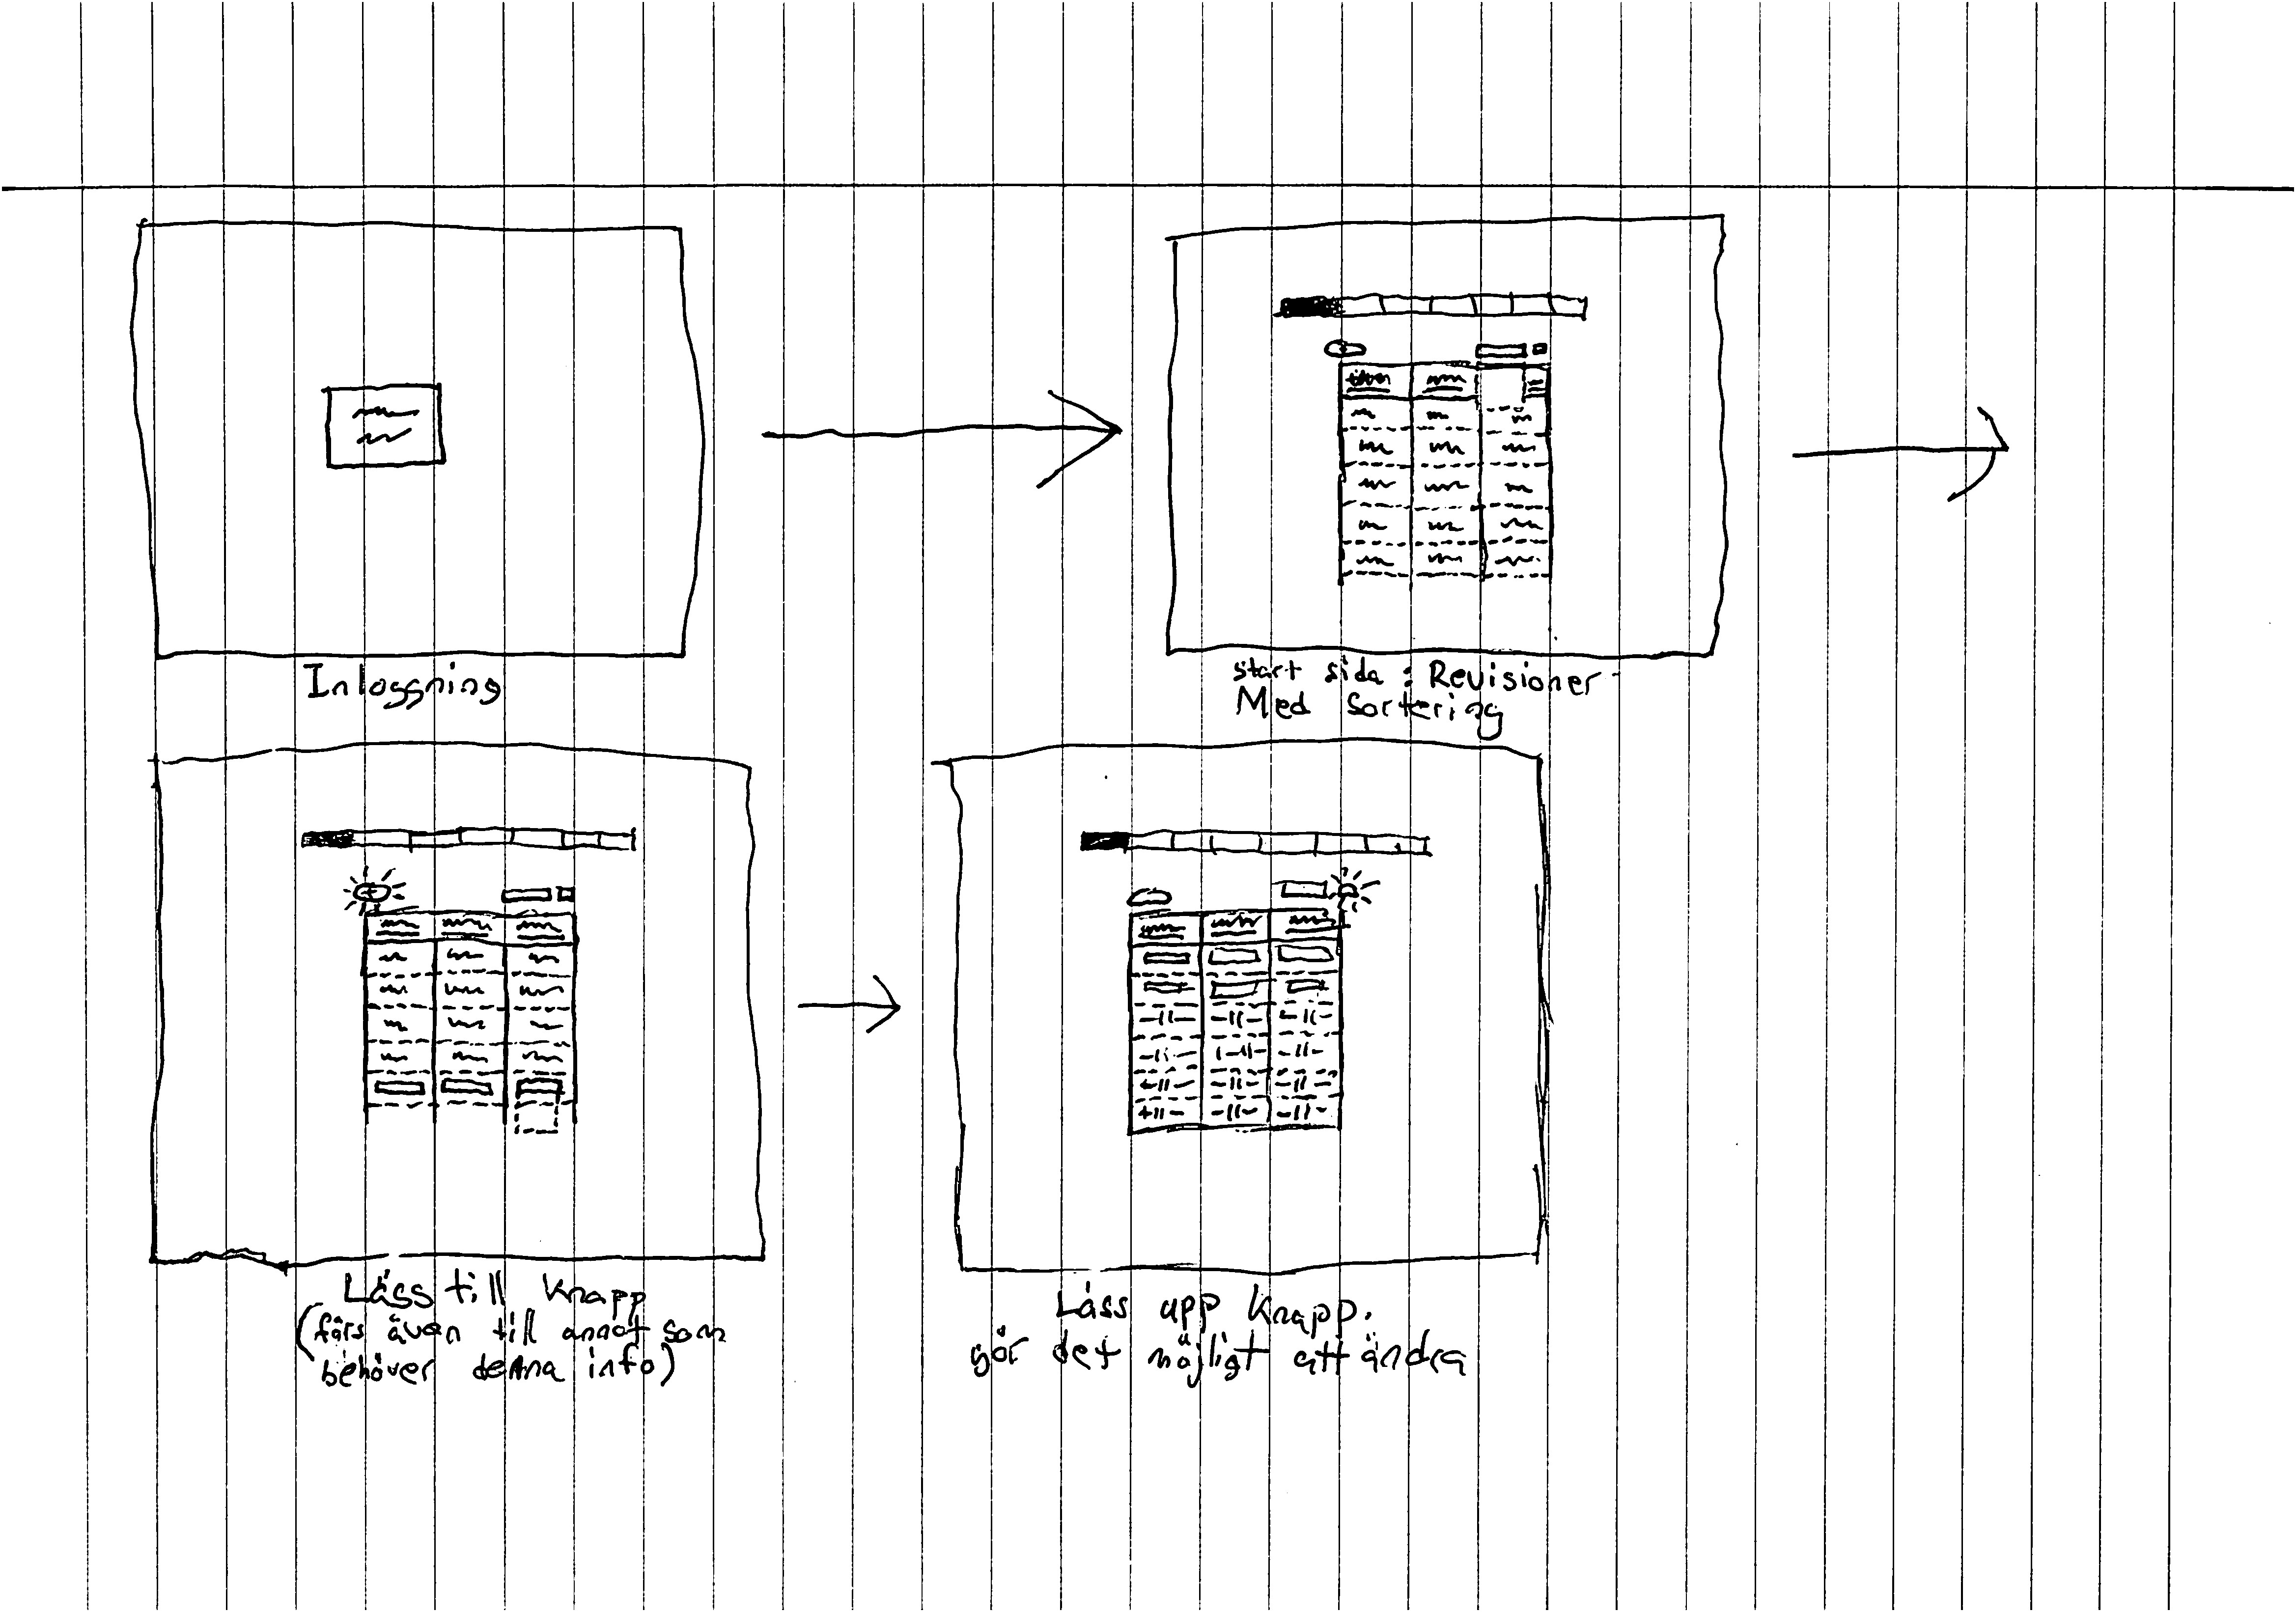 Inloggning
start sida : Revisioner
Med Sortering
Låss till knapp
(förs även till annat som
behöver denna info)
Låss upp knapp.
gör det möjligt att ändra